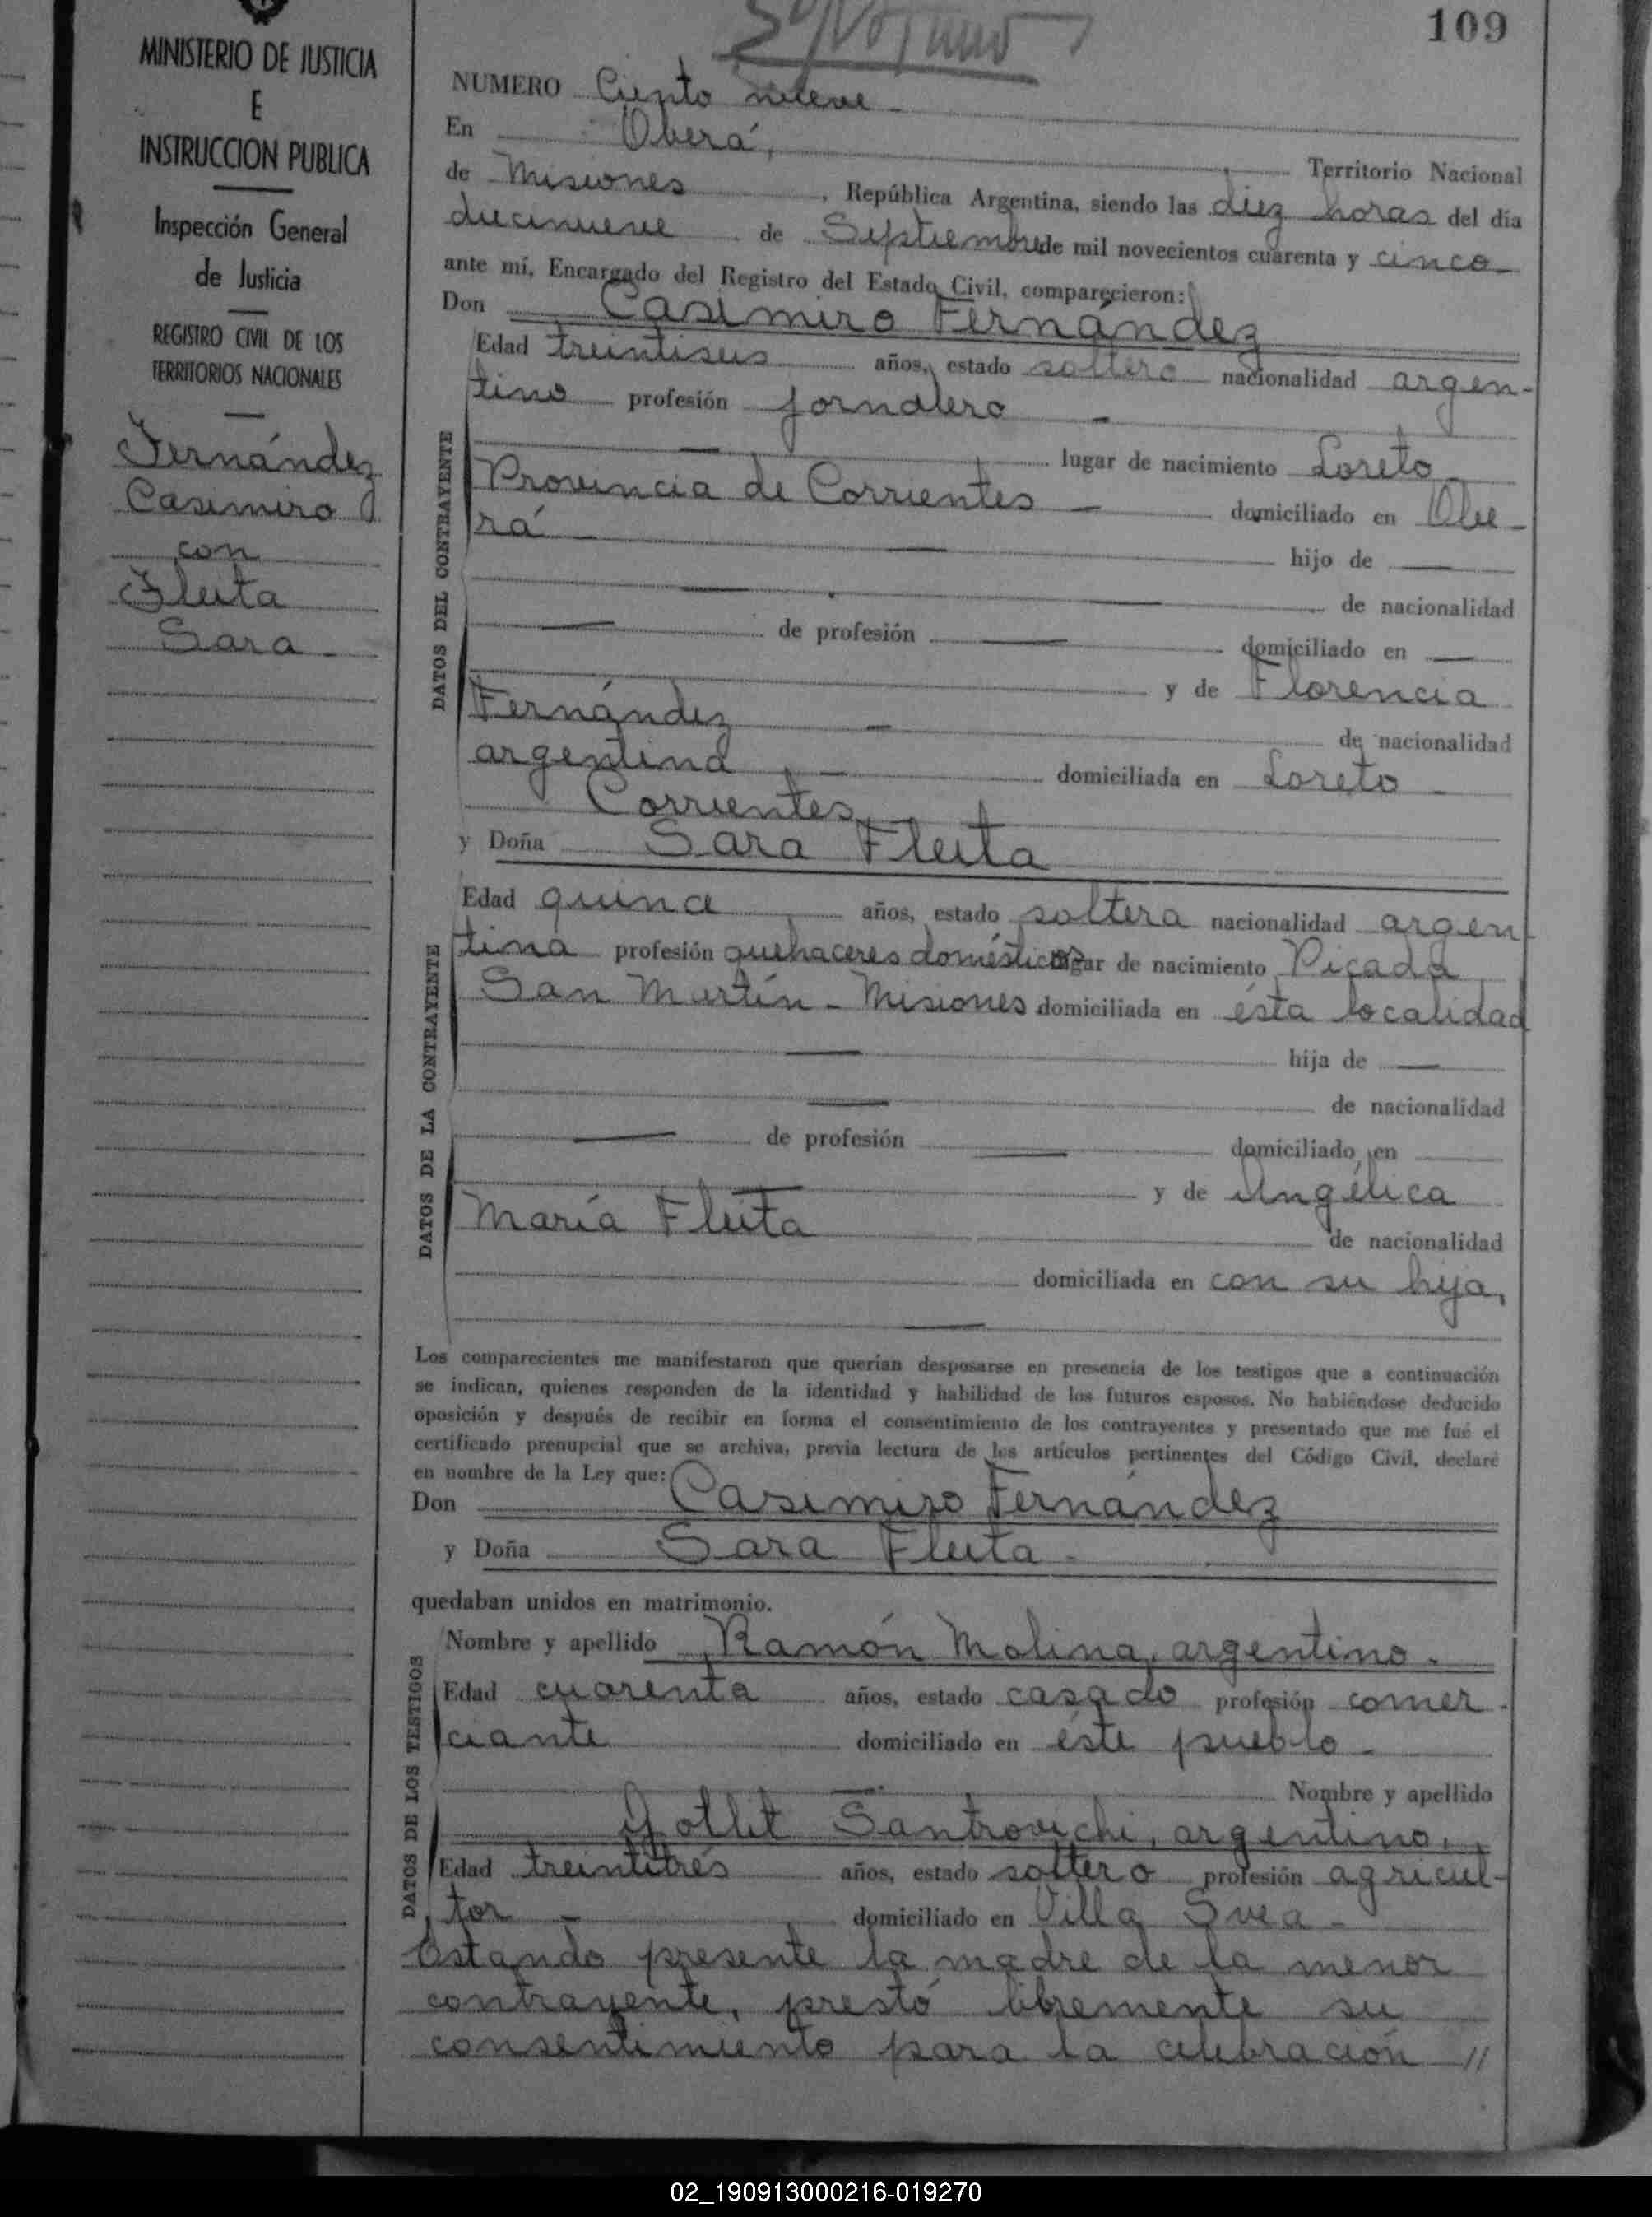 109
MINISTERIO DE JUSTICIA
E
INSTRUCCION PUBLICA
Inspección General
de Justicia
REGISTRO CIVIL DE LOS
TERRITORIOS NACIONALES
Fernández
Casimiro
con
Fleita
Sara
NUMERO Ciento nueve
En Oberá, Territorio Nacional
de Misiones, República Argentina, siendo las diez horas del día
diecinueve de Septiembre de mil novecientos cuarenta y cinco
ante mí, Encargado del Registro del Estado Civil, comparecieron:
Don Casimiro Fernández
DATOS DEL CONTRAYENTE
Edad treintiseis años, estado soltero nacionalidad argen-
tino profesión jornalero
lugar de nacimiento Loreto
Provincia de Corrientes domiciliado en Obe-
rá
hijo de
de nacionalidad
de profesión domiciliado en
y de Florencia
Fernández de nacionalidad
argentina domiciliada en Loreto
Corrientes
y Doña Sara Fleita
DATOS DE LA CONTRAYENTE
Edad quince años, estado soltera nacionalidad argen
tina profesión quehaceres domésticos lugar de nacimiento Picada
San Martín - Misiones domiciliada en ésta localidad
hija de
de nacionalidad
de profesión domiciliado en
y de Angélica
María Fleita de nacionalidad
domiciliada en con su hija,
Los comparecientes me manifestaron que querían desposarse en presencia de los testigos que a continuación
se indican, quienes responden de la identidad y habilidad de los futuros esposos. No habiéndose deducido
oposición y después de recibir en forma el consentimiento de los contrayentes y presentado que me fué el
certificado prenupcial que se archiva, previa lectura de los artículos pertinentes del Código Civil, declaré
en nombre de la Ley que:
Don Casimiro Fernández
y Doña Sara Fleita
quedaban unidos en matrimonio.
DATOS DE LOS TESTIGOS
Nombre y apellido Ramón Molina, argentino.
Edad cuarenta años, estado casado profesión comer
ciante domiciliado en éste pueblo
Nombre y apellido
Gotlit Santrovichi, argentino,
Edad treintitrés años, estado soltero profesión agricul-
tor domiciliado en Villa Svea
Estando presente la madre de la menor
contrayente, prestó libremente su
consentimiento para la celebración //
02_190913000216-019270